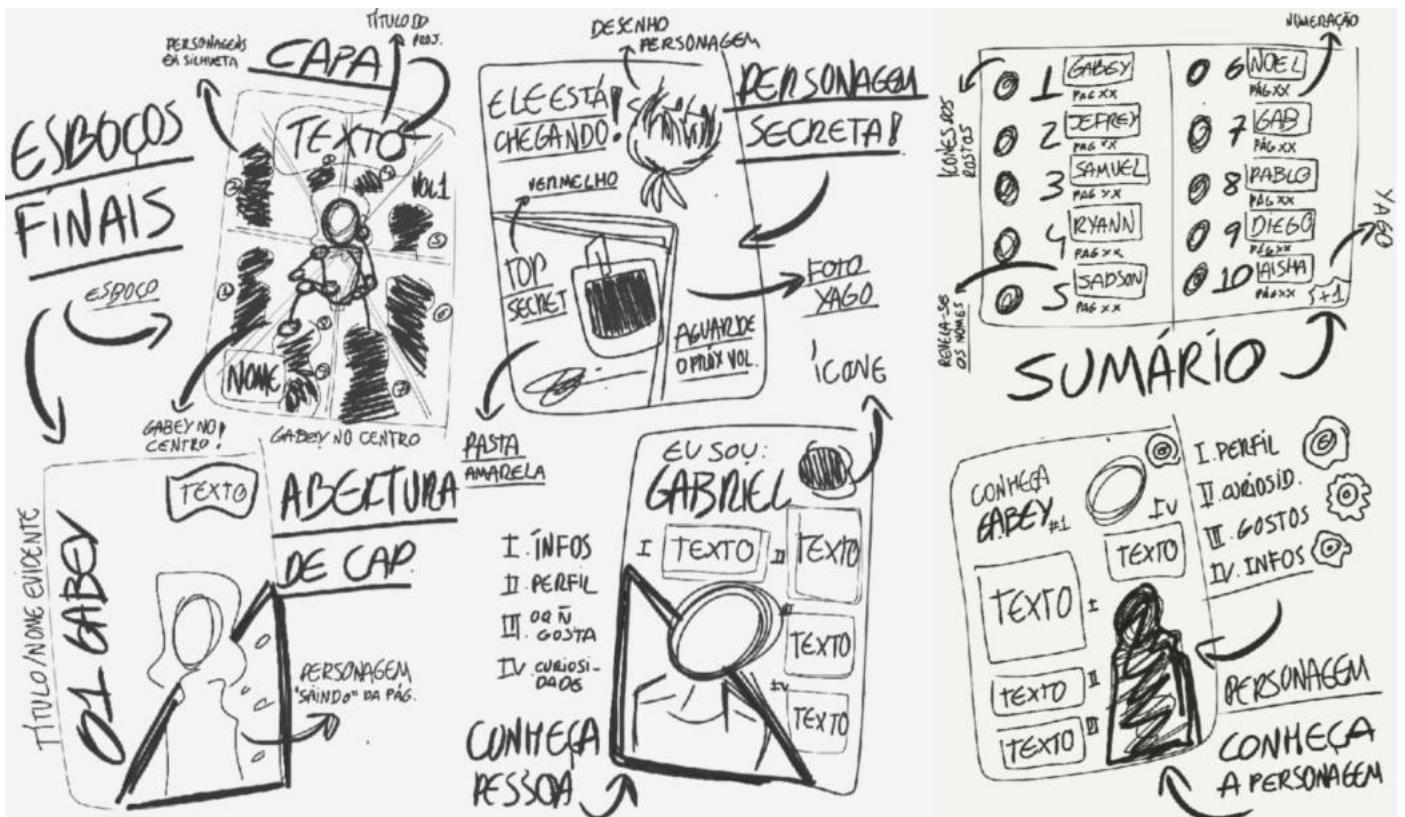 ESBOÇOS
FINAIS
ESBOÇO
PERSONAGENS
EM SILHUETA
CAPA
TÍTULO DO
PROJ.
TEXTO
VOL.1
NOME
GABEY NO
CENTRO!
GABEY NO CENTRO
DESENHO
PERSONAGEM
ELE ESTÁ
CHEGANDO!
VERMELHO
TOP
SECRET
AGUARDE
O PRÓX VOL.
PERSONAGEM
SECRETA!
FOTO
YAGO
PASTA
AMARELA
NUMERAÇÃO
ÍCONES DOS
ROSTOS
1 GABEY
PÁG XX
2 JEFREY
PAG XX
3 SAMUEL
PAG XX
4 RYANN
PAG XX
5 SADSON
PAG XX
6 NOEL
PÁG XX
7 GAB
PÁG XX
8 PABLO
PÁG XX
9 DIEGO
PÁG XX
10 AISHA
PÁG XX
+1
YAGO
REVELA-SE
OS NOMES
SUMÁRIO
TÍTULO/NOME EVIDENTE
01 GABEY
TEXTO
ABERTURA
DE CAP.
PERSONAGEM
"SAINDO" DA PÁG.
ÍCONE
EU SOU:
GABRIEL
I TEXTO
II TEXTO
III TEXTO
IV TEXTO
I. INFOS
II. PERFIL
III. OQ Ñ
GOSTA
IV. CURIOSI-
DADE
CONHEÇA
PESSOA
CONHEÇA
GABEY #1
IV
TEXTO
TEXTO I
TEXTO II
TEXTO III
I. PERFIL
II. CURIOSID.
III. GOSTOS
IV. INFOS
PERSONAGEM
CONHEÇA
A PERSONAGEM